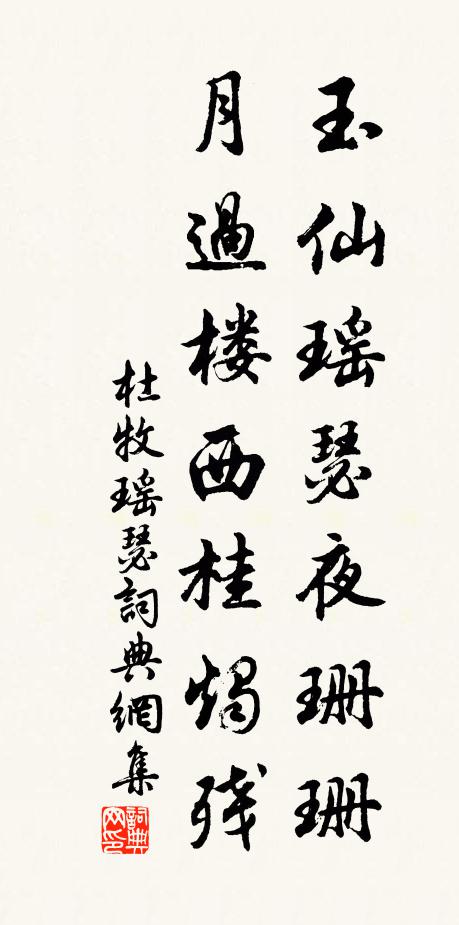 玉仙瑶瑟夜珊珊
月過楼西桂燭残
杜牧瑶瑟詞典網集
詞典網印